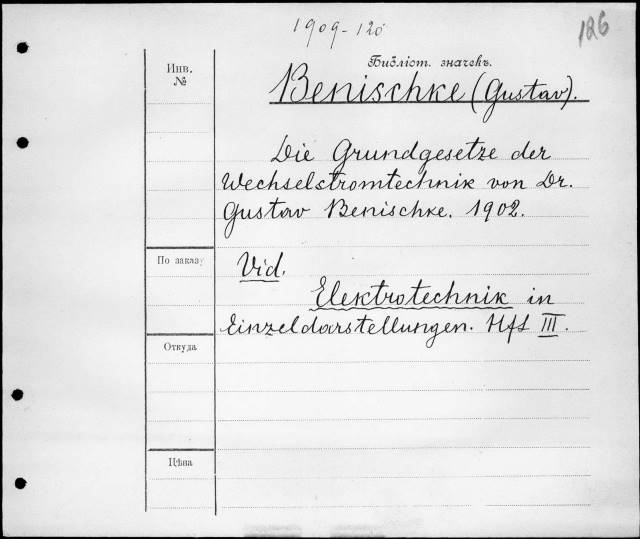 1909-120
126
Библіот. значекъ.
Инв.
№
Benischke (Gustav).
Die Grundgesetze der
Wechselstromtechnik von Dr.
Gustav Benischke. 1902.
По заказу
Vid.
Elektrotechnik in
Einzeldarstellungen. Hft III.
Откуда
Цѣна